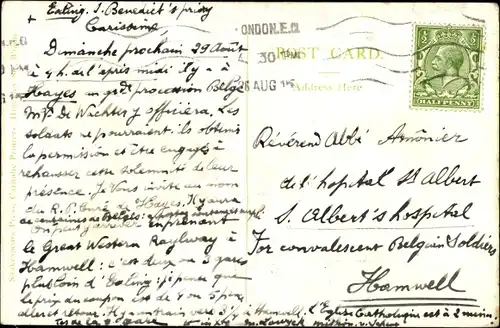 + Ealing. S. Benedict's priory
Carissime
Dimanche prochain 29 Août
à 4 h. de l'après midi il y a à
Hayes un procession Belge
Mgr De Wachter y officiera. Les
soldats ne pourraient ils obtenir
la permission et être engagés à
rehausser cette solemnité de leur
présence. Je vous invite au nom
du R. P. Curé de Hayes. Il y aura
de Belges
On peut y arriver en prenant
le Great Western Raylway à
Hanwell: c'est deux ou 3 gares
plus loin d'Ealing: je pense que
le prix du coupon est de 4 ou 5 pence
aller et retour. Il y a un train vers 3 1/4 à Hanwell. l'Eglise Catholique est à 2 minutes
de la gare
LONDON. E.C.
30
26 AUG 15
POST CARD.
Address Here
HALFPENNY
Révérend Abbé Aumônier
de l'hopital St Albert
S. Albert's hospital
For convalescent Belgian Soldiers
Hanwell